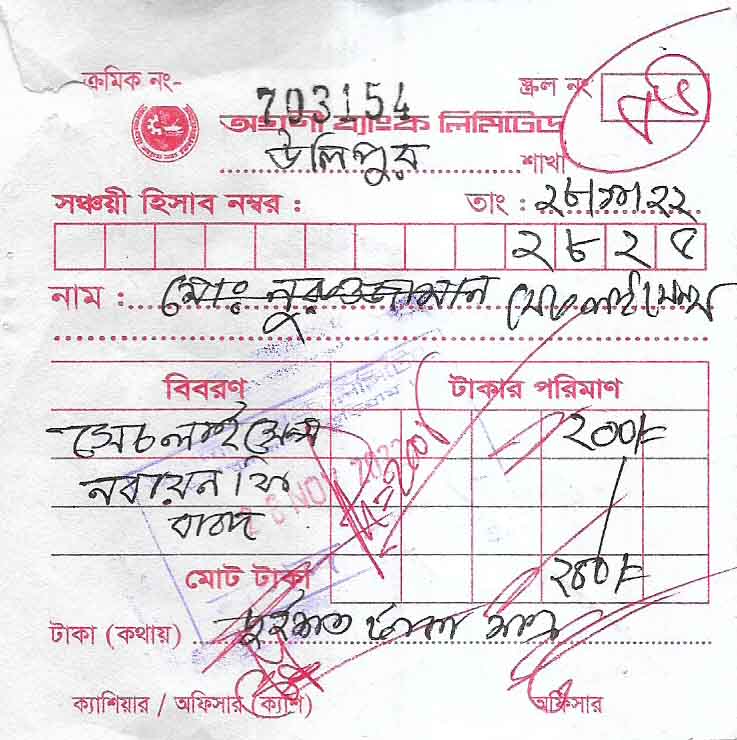 ক্রমিক নং-
703154
স্ক্রল নং
অগ্রণী ব্যাংক লিমিটেড
উলিপুর শাখা
সঞ্চয়ী হিসাব নম্বর : তাং : ২৮/১১/২২
২ ৮ ২ ৫
নাম : মোঃ নুরুজ্জামান সেচ লাইসেন্স
বিবরণ টাকার পরিমাণ
সেচ লাইসেন্স ২০০/=
নবায়ন ফি
বাবদ
মোট টাকা ২০০/=
টাকা (কথায়) দুইশত টাকা মাত্র
ক্যাশিয়ার / অফিসার (ক্যাশ) অফিসার